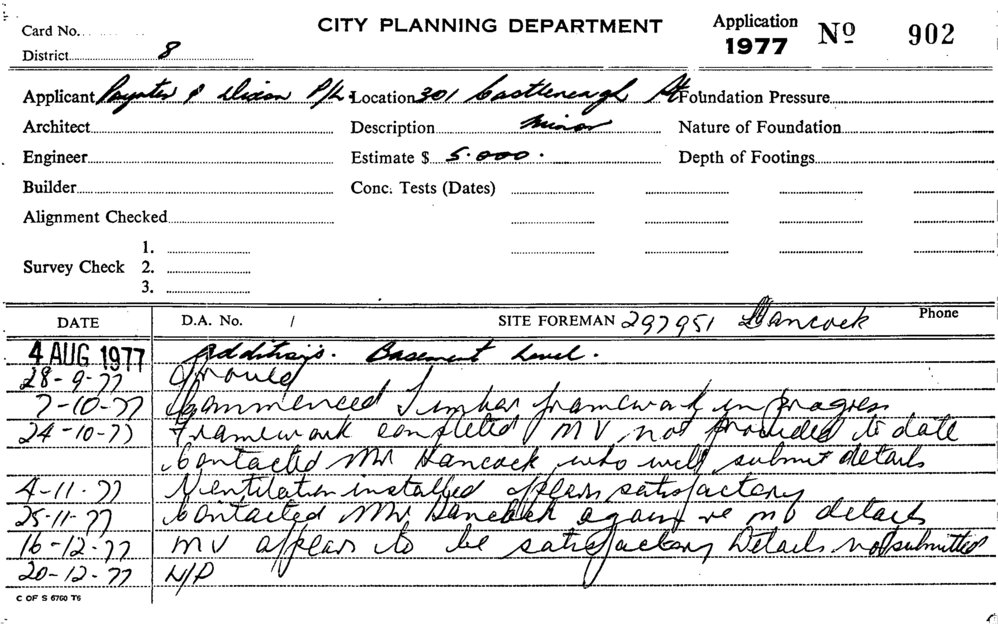 Card No.
CITY PLANNING DEPARTMENT
Application 1977 No 902
District 8
Applicant Poynter & Dixon P/L. Location 301 Castlereagh St Foundation Pressure
Architect Description Minor Nature of Foundation
Engineer Estimate $ 5.000. Depth of Footings
Builder Conc. Tests (Dates)
Alignment Checked
1.
Survey Check 2.
3.
DATE D.A. No. / SITE FOREMAN 297951 Hancock Phone
4 AUG 1977 Additions. Basement Level.
28-9-77
7-10-77 Commenced Timber framework in progress
24-10-77 Framework completed MV not provided to date
Contacted Mr Hancock who will submit details
4-11-77 Ventilation installed appears satisfactory
25-11-77 Contacted Mr Hancock again re MV details
16-12-77 MV appears to be satisfactory Details not submitted
20-12-77 N/P
C OF S 6760 T6